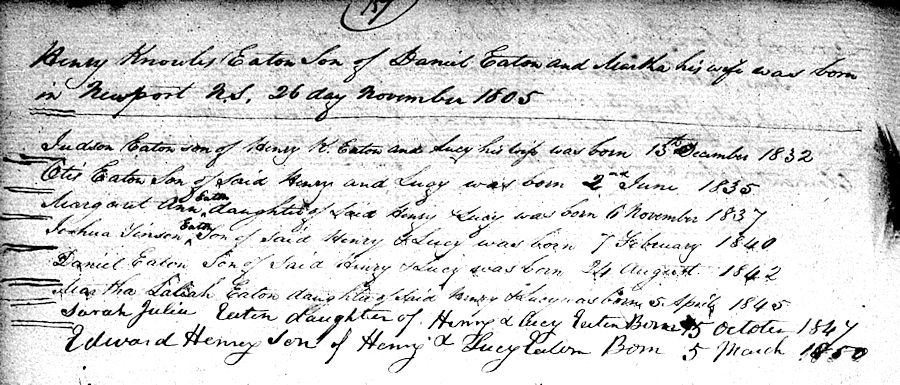 157
Henry Knowles Eaton Son of Daniel Eaton and Martha his wife was born
in Newport N.S. 26 day November 1805
Judson Eaton son of Henry K. Eaton and Lucy his wife was born 15th December 1832
Otis Eaton Son of Said Henry and Lucy was born 2nd June 1835
Margaret Ann Eaton daughter of Said Henry & Lucy was born 6 November 1837
Joshua Eaton Son of Said Henry & Lucy was born 7 February 1840
Daniel Eaton Son of Said Henry & Lucy was born 24 August 1842
Martha Eaton daughter of Said Henry & Lucy was born 5 April 1845
Sarah Julia Eaton daughter of Henry & Lucy Eaton Born 5 October 1847
Edward Henry Son of Henry & Lucy Eaton Born 5 March 1850